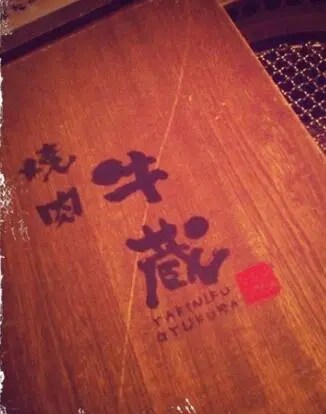 焼肉
牛蔵
YAKINIKU
GYUKURA